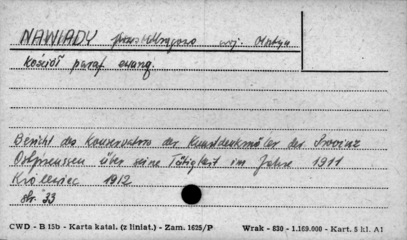 NAWIADY pow. Mrągowo woj. Olsztyn
Kościół paraf. ewang.
Bericht des Konservators der Kunstdenkmäler der Provinz
Ostpreussen über seine Tätigkeit im Jahre 1911
Królewiec 1912
str. 33
CWD - B 15b - Karta katal. (z liniat.) - Zam. 1625/P Wrak - 630 - 1.169.000 - Kart. 5 kl. A1